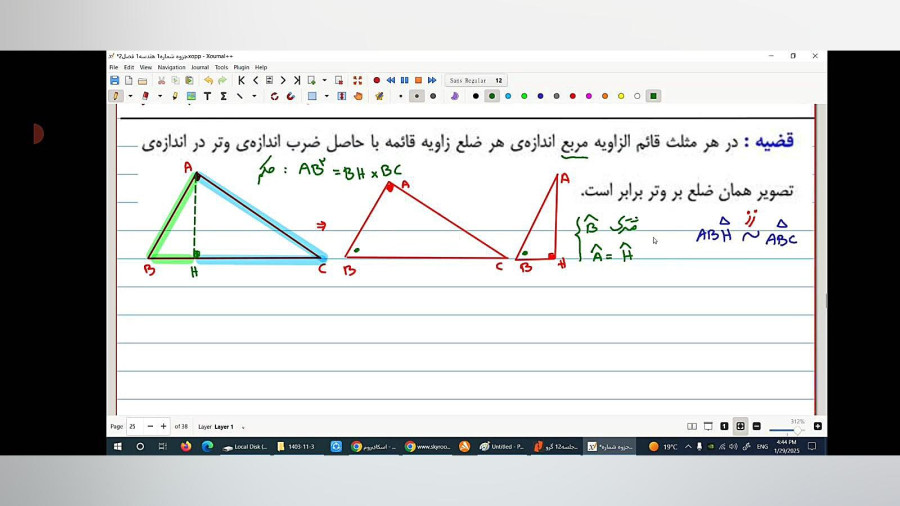 جزوه شماره1 هندسه1 فصل2*.xopp - Xournal++
File Edit View Navigation Journal Tools Plugin Help
Sans Regular 12
قضیه : در هر مثلث قائم الزاویه مربع اندازه‌ی هر ضلع زاویه قائمه با حاصل ضرب اندازه‌ی وتر در اندازه‌ی
تصویر همان ضلع بر وتر برابر است.
حکم : AB² = BH × BC
A
B
H
C
⇒
A
B
C
A
B
H
B̂ مشترک
Â = Ĥ
زز
ABH ~ ABC
Page 25 of 38 Layer Layer 1
312%
Local Disk (...
1403-11-3
اسکای‌روم - ...
www.skyroo...
Untitled - P...
جلسه12 گرو...
جزوه شماره*...
19°C
ENG
4:44 PM
1/29/2025